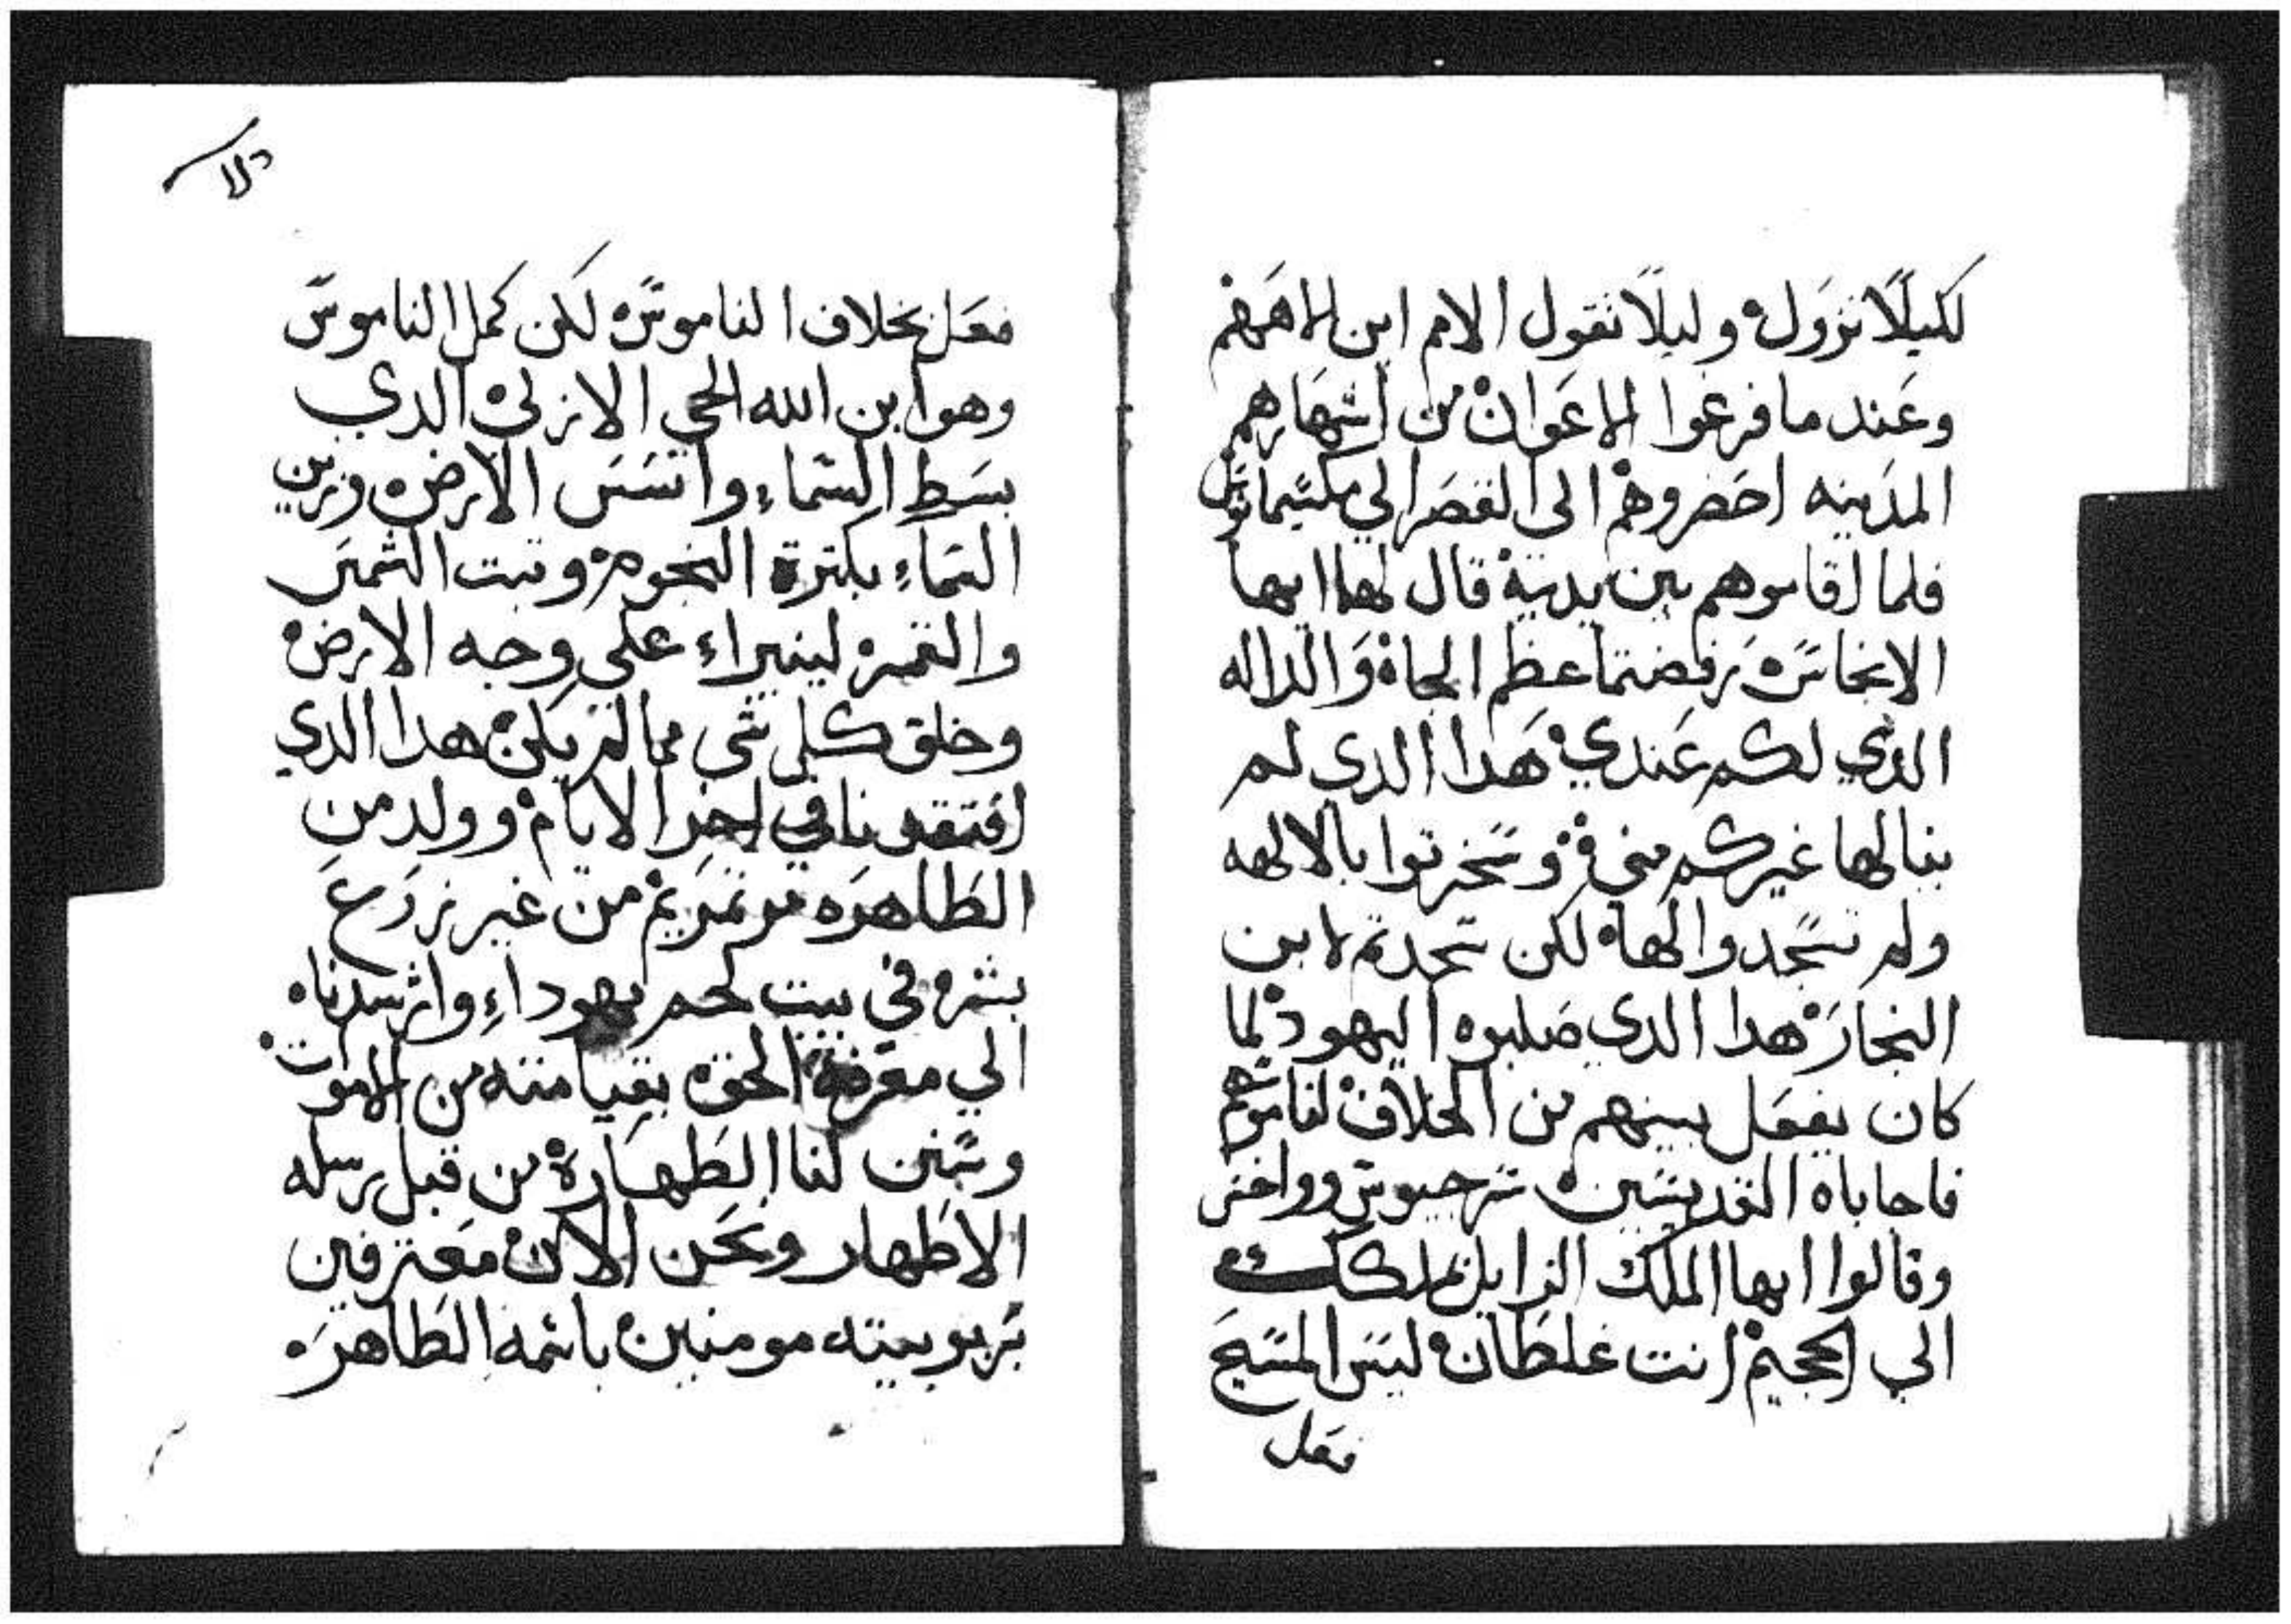 لكيلا نزول وليلا تقول الامم اين الاههم
وعند ما فرغوا الاعوان من اشهارهم
المدينه احضروهم الى القصر الي مكسيمانوس
فلما اقاموهم بين يديه قال لهما ايها
الانجاس رفضتما عظم الجاه والداله
الذي لكم عندي هدا الدي لم
ينالها غيركم مني وسخرتوا بالالهه
ولم تسجدوا لها لكن سجدتم لابن
النجار هدا الدي صلبوه اليهود لما
كان يفعل بينهم من الخلاف لناموسهم
فاجاباه القديسين سرجيوس وواخس
وقالوا ايها الملك الزايل ملكك
الي الجحيم انت غلطان ليس المسيح
فعل
فعل بخلاف الناموس لكن كمل الناموس
وهو ابن الله الحي الازلي الدي
بسط السماء واسس الارض وزين
السماء بكترة النجوم وتبت الشمس
والقمر لينيراء على وجه الارض
وخلق كل شي مما لم يكن هدا الدي
افتقدنا في اخر الايام وولد من
الطاهره مرتمريم من غير زرع
بشر في بيت لحم يهوداء وارشدناه
الي معرفة الحق بقيامته من الاموات
وبين لنا الطهارة من قبل رسله
الاطهار ونحن الان معترفين
بربوبيته مومنين باسمه الطاهر